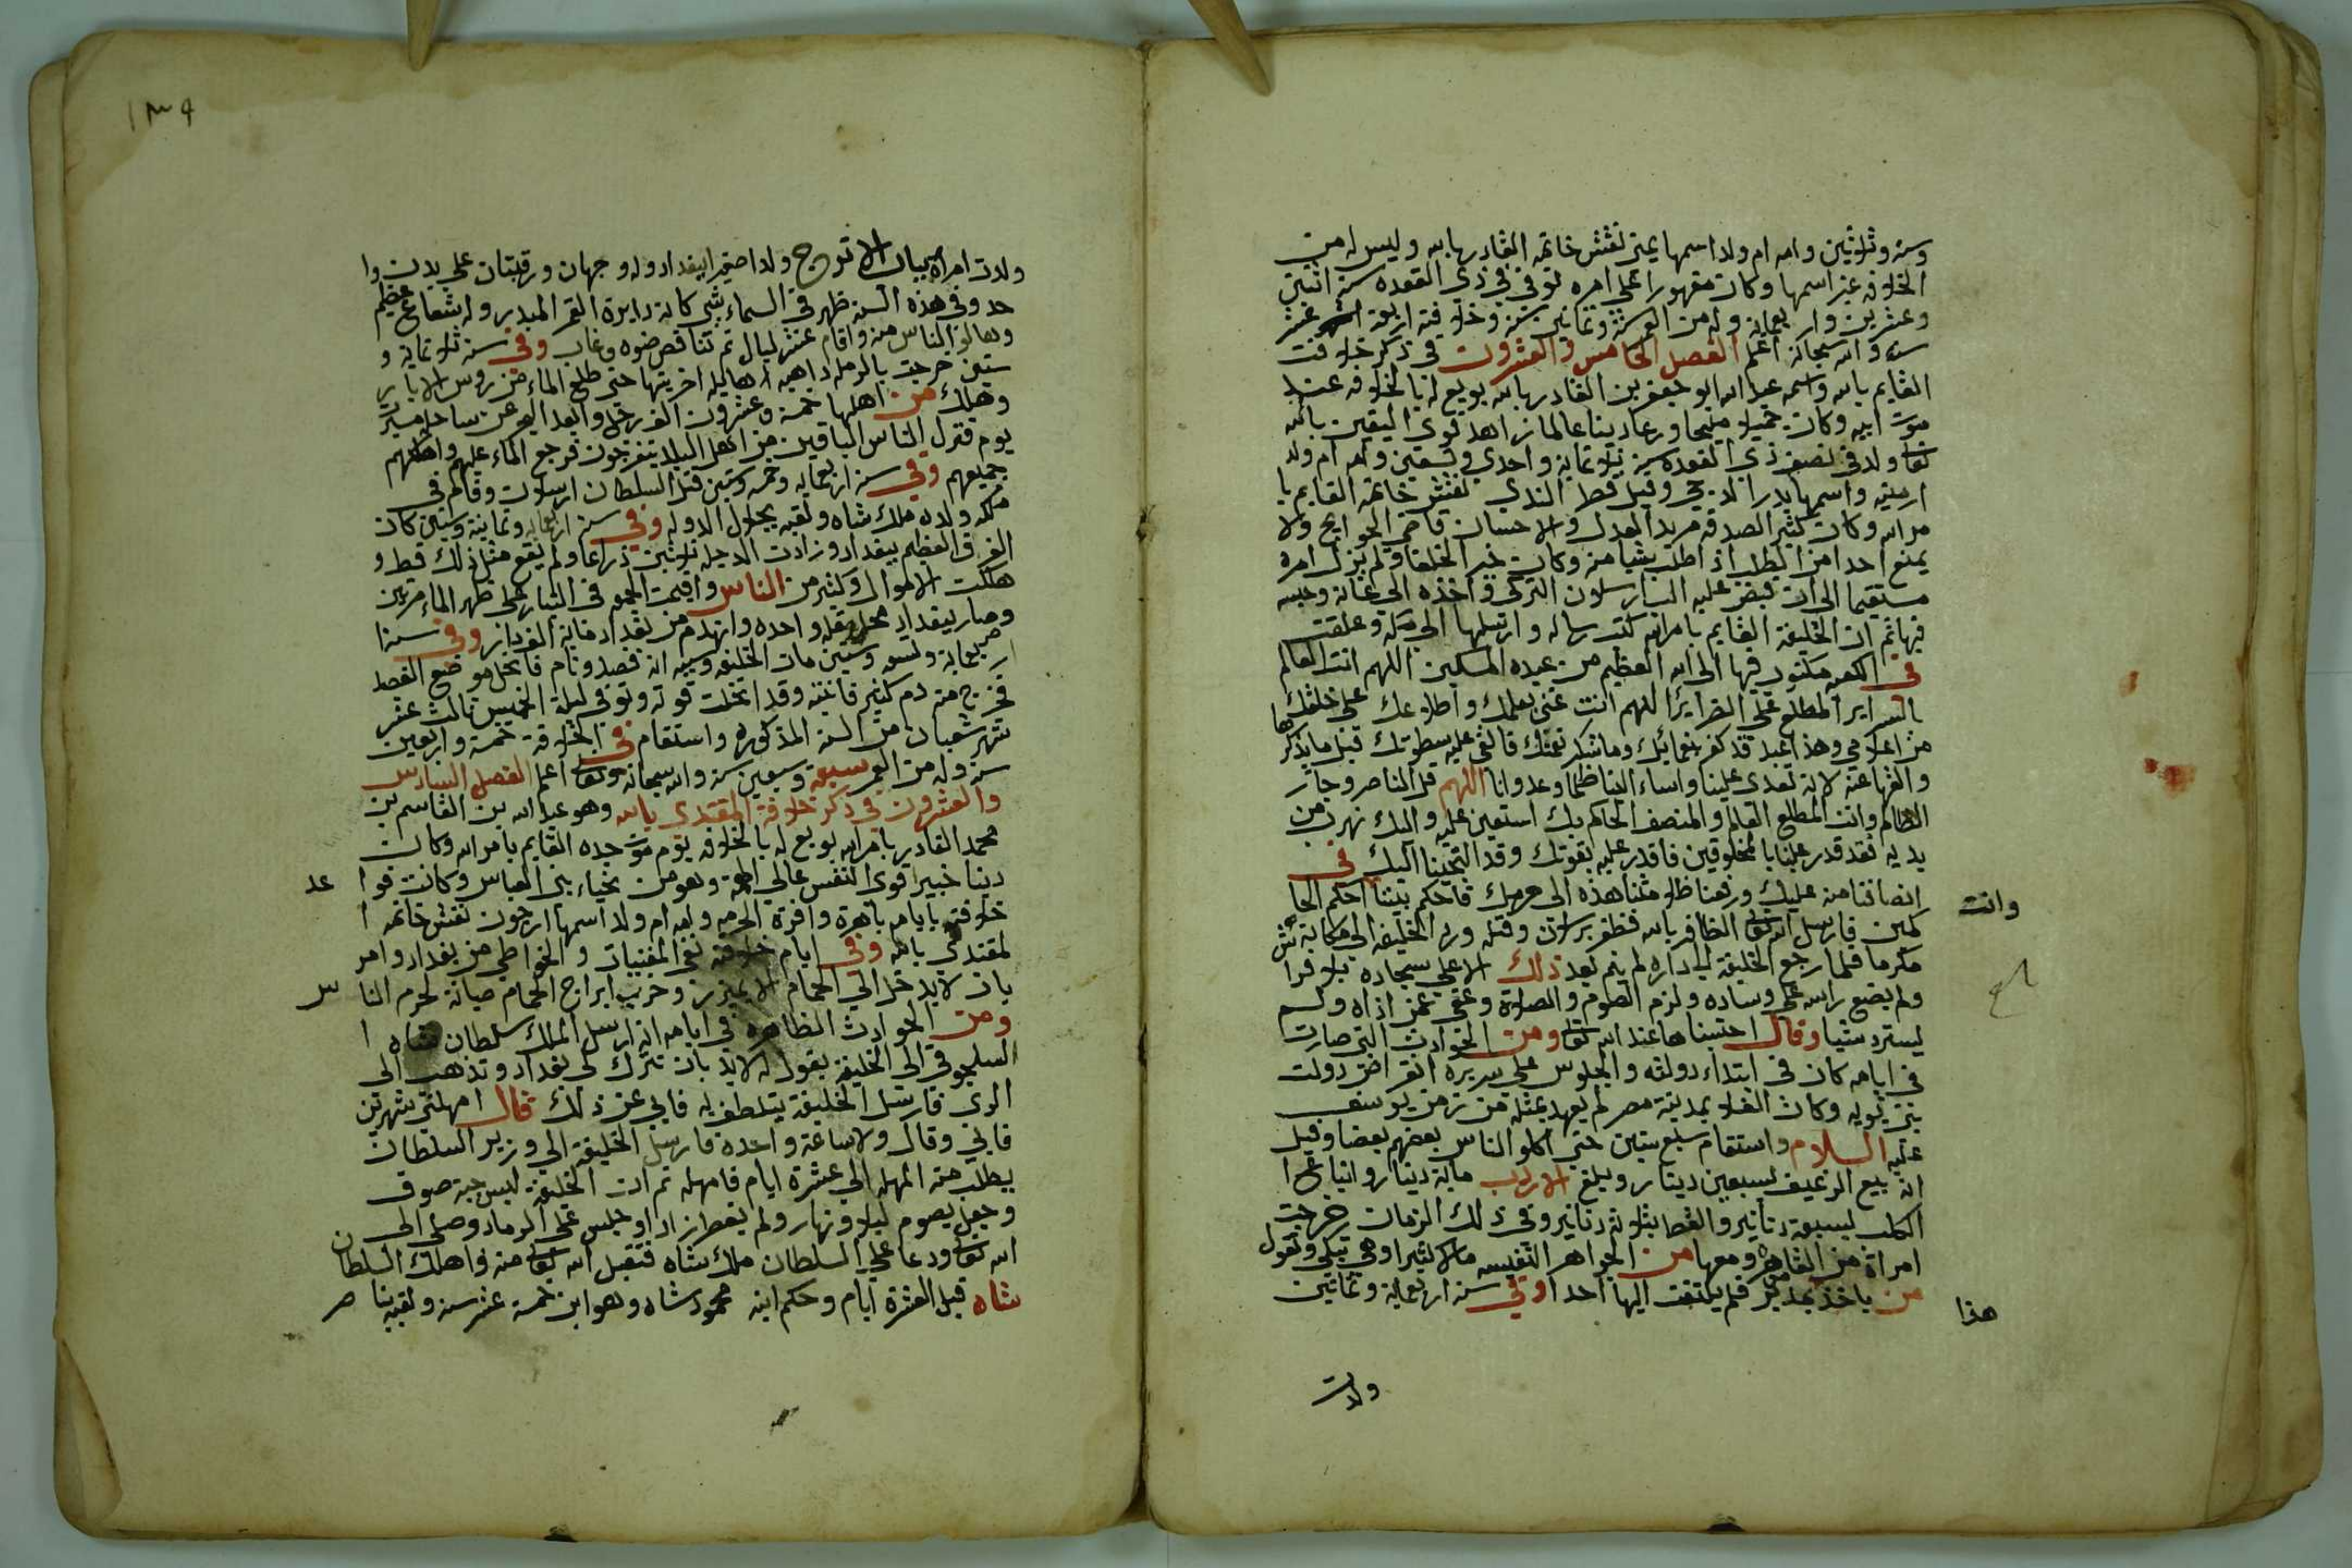 وسنه وثلاثين وامه ام ولد اسمها يمنى نقش خاتمه القادر بالله وليس له من
الخلافه غير اسمها وكان مقهورا على امره توفى فى ذى القعده سنة اثنين
وعشرين واربعمائه وله من العمر ستة وثمانين سنة وخلافته اربعة عشر
سنه والله سبحانه اعلم الفصل الخامس والعشرون فى ذكر خلافت
القايم بالله واسمه عبد الله ابو جعفر بن القادر بالله بويع له بالخلافه عند
موت ابيه وكان جميلا مليحا ورعا دينا عالما زاهد قوى اليقين بالله
تعالى ولد فى نصف ذى القعده سنة ثلاثمايه واحدى وتسعين وامه ام ولد
ارمنيه واسمها بدر الدجى وقيل قطر الندى نقش خاتمه القايم با
مر الله وكان كثير الصدقه مريد العدل والاحسان قاضى الحوايج ولا
يمنع احدا من الطلب اذ اطلب شيا منه وكان خير الخلفا ولم يزل امره
مستقيما الى ان قبض عليه البسارسلان التركى واخذه الى عانه وحبسه
فيها ثم ان الخليفة القايم بامر الله كتب رساله وارسلها الى مكه وعلقت
فى الكعبه مكتوب فيها الى الله العظيم من عبده المسكين اللهم انت العالم
بالسراير المطلع على الضراير اللهم انت غنى بعلمك واطلاعك على خلقك
من اعلامى وهذا عبد قد كفر بنعمائك وما شكر نعمك فالقى عليه سطوتك قبل ما يذكرها
والغها عنه لانه تعدى علينا واساء الينا ظلما وعدوانا اللهم قل الناصر وجار
الظالم وانت المطلع العالم والمنصف الحاكم بك استعين عليه واليك نهرب من
يديه فقد قدر علينا بالمخلوقين فاقدر عليه بقوتك وقد التجينا اليك فى
انصافنا منه عليك ورفعنا ظلامتنا هذه الى حرمك فاحكم بيننا احكم الحا
كمين فارسل الله تعالى الظافر بالله فظفر برسلان وقتله ورد الخليفه الى مكانه
مكرما فلما رجع الخليفة الى داره لم ينم بعد ذلك الا على سجاده بلا فرا
ولم يضع راسه على وساده ولزم الصوم والصلاوة وعفى عن من اذاه ولم
يسترد شيا وقال احتسبناها عند الله تعالى ومن الحوادث التى صارت
فى ايامه كان فى ابتداء دولته والجلوس على سريره انقراض دولت
بنى بويه وكان الغلاء بمدينة مصر لم يعهد بمثله من زمن يوسف
عليه السلام واستقام سبع سنين حتى اكلو الناس بعضهم بعضا وقيل
انه بيع الرغيف بسبعين دينار وبلغ الاردب مائة دينار وانباع ا
الكلب بسبعة دنانير والقط بثلاثه دنانير وفى ذلك الزمان خرجت
امراة من القاهره ومعها من الجواهر النفيسه مالا كثيرا وهى تبكى وتقول
من ياخذ بمد بر فلم يلتفت اليها احدا وفى سنة اربعمائه وثمانين
وانت
هذا
ولدت
١٣٩
ولدت امراة بباب الاترج ولدا صغيرا ببغداد وله وجهان ورقبتان على بدن وا
حد وفى هذه السنه ظهر فى السماء شى كانه دايرة القمر المبدر وله شعاع عظيم
وهالو الناس منه واقام عشر ليال ثم تناقص ضوه وغاب وفى سنة ثلاثمايه و
ستين خرجت بالرمله داهيه هايله اخربتها حتى طلع الماء من روس الابار
وهلك من اهلها خمسه وعشرون الف رجل وابعد البحر عن ساحله مسيرة
يوم فنزل الناس الباقين من اهل البلاد يتفرجون فرجع الماء عليهم واهلكهم
جميعهم وفى سنة اربعمايه وخمسه وستين قتل السلطان ارسلان وقام فى
ملكه ولده ملك شاه ولقبه بجلال الدوله وفى سنة اربعمايه وثمانية وستين كان
الغرق العظيم ببغداد وزادت الدجله ثلاثين ذراعا ولم يقع مثل ذلك قط و
هلكت الاموال وكثير من الناس واقيمت الجمعه فى الشبار على ظهر الماء مرتين
وصار بغداد واحده وانهدم من بغداد ماية الف دار وفى سنة ا
اربعماية وتسعه وستين مات الخليفه وسببه انه فصد ونام فانحل موضع الفصد
فخرج منه دم كثير فانتبه وقد انحلت قوته وتوفى ليلة الخميس ثالث عشر
شهر شعبان من السنه المذكوره واستقام فى الخلافة خمسة واربعين
سنه وله من العمر سبعة وسبعين سنه والله سبحانه وتعالى اعلم الفصل السادس
والعشرون فى ذكر خلافة المقتدى بالله وهو عبد الله بن القاسم بن
محمد القادر بامر الله بويع له بالخلافه يوم موت جده القايم بامر الله وكان
دينا خبيرا قوى النفس عالى الهمه وهو من نخباء بنى العباس وكانت قوا عد
خلافته بايامه باهرة وافرة الحرمه وامه ام ولد اسمها ارجون نقش خاتمه ا
لمقتدى بالله وفى ايام خلافته نفى المغنيات والخواطى من بغداد وامر
بان لا يدخل الى الحمام الا بميزر وخرب ابراج الحمام صيانة لحرم النا س
ومن الحوادث الظاهره فى ايامه انه ارسل الملك سلطان شاه ا
السلجوقى الى الخليفة يقول له لابد بان تترك لى بغداد وتذهب الى
الرى فارسل الخليفة يتلطف له فابى عن ذلك قال امهلنى شهرين
فابى وقال ولا ساعة واحده فارسل الخليفة الى وزير السلطان
يطلب منه المهله الى عشرة ايام فامهله ثم ان الخليفة لبس جبة صوف
وجعل يصوم ليلا ونهار ولم يفطر زادا وجلس على الرماد وصلى الى
الله تعالى ودعا على السلطان ملك شاه فتقبل الله تعالى منه واهلك السلطان
شاه قبل العشرة ايام وحكم ابنه محمود شاه وهو ابن خمسة عشر سنه ولقبه بنا صر